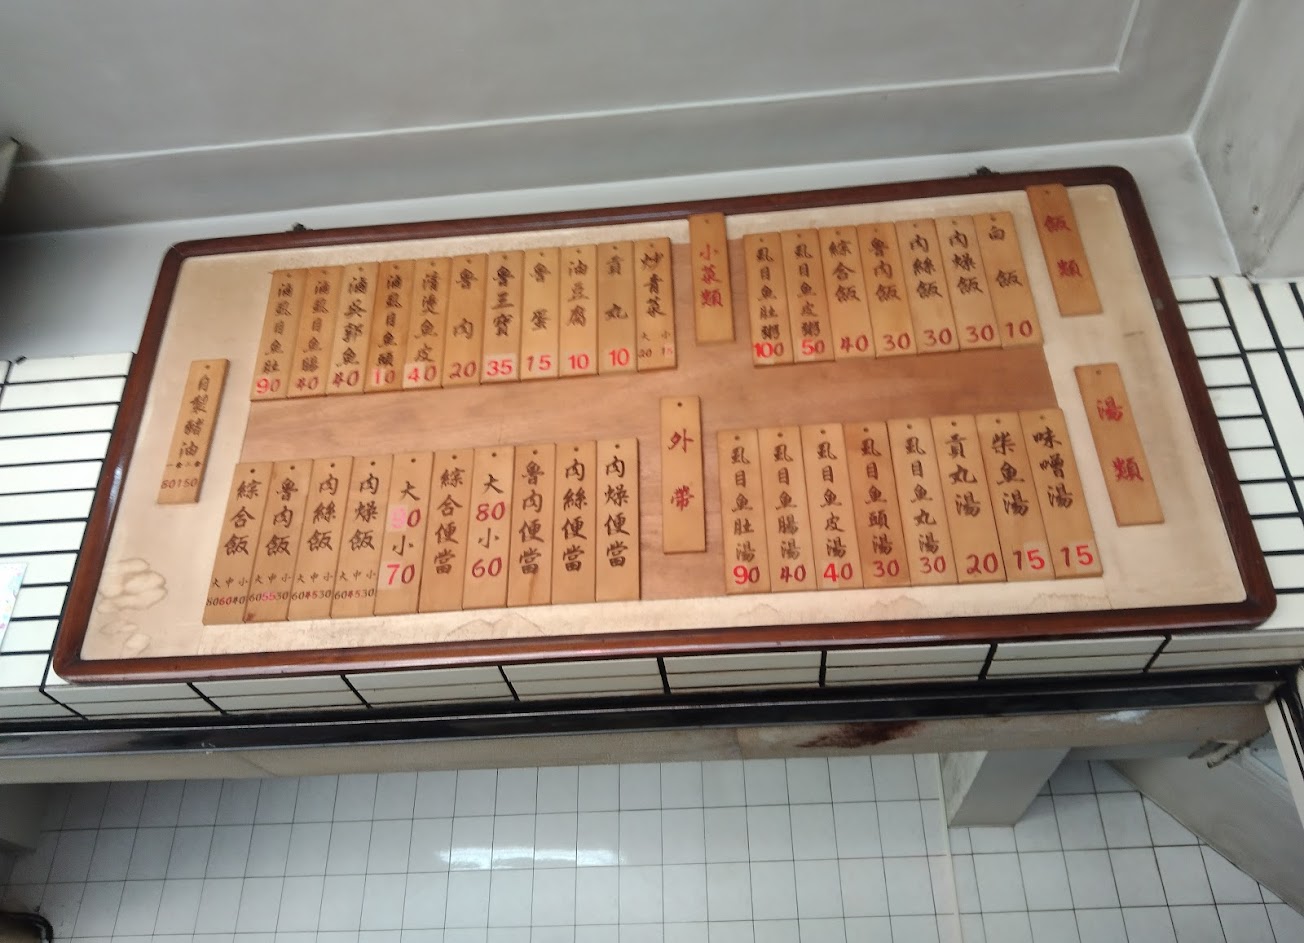 飯類
白飯 10
肉燥飯 30
肉絲飯 30
魯肉飯 30
綜合飯 40
虱目魚皮粥 50
虱目魚肚粥 100
小菜類
炒青菜 大 小 20 15
貢丸 10
油豆腐 10
魯蛋 15
魯三寶 35
魯肉 20
清燙魚皮 40
滷虱目魚頭 10
滷吳郭魚 40
滷虱目魚腸 40
滷虱目魚肚 90
湯類
味噌湯 15
柴魚湯 15
貢丸湯 20
虱目魚丸湯 30
虱目魚頭湯 30
虱目魚皮湯 40
虱目魚腸湯 40
虱目魚肚湯 90
外帶
肉燥便當
肉絲便當
魯肉便當
大 80 小 60
綜合便當
大 90 小 70
肉燥飯 大 中 小 60 45 30
肉絲飯 大 中 小 60 45 30
魯肉飯 大 中 小 60 55 30
綜合飯 大 中 小 80 60 40
自製豬油
80 150